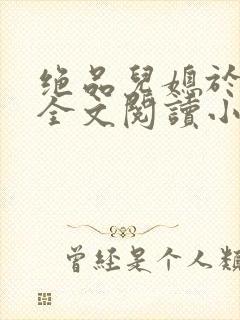 绝品兒媳於
全文閱讀小
曾经是个人類